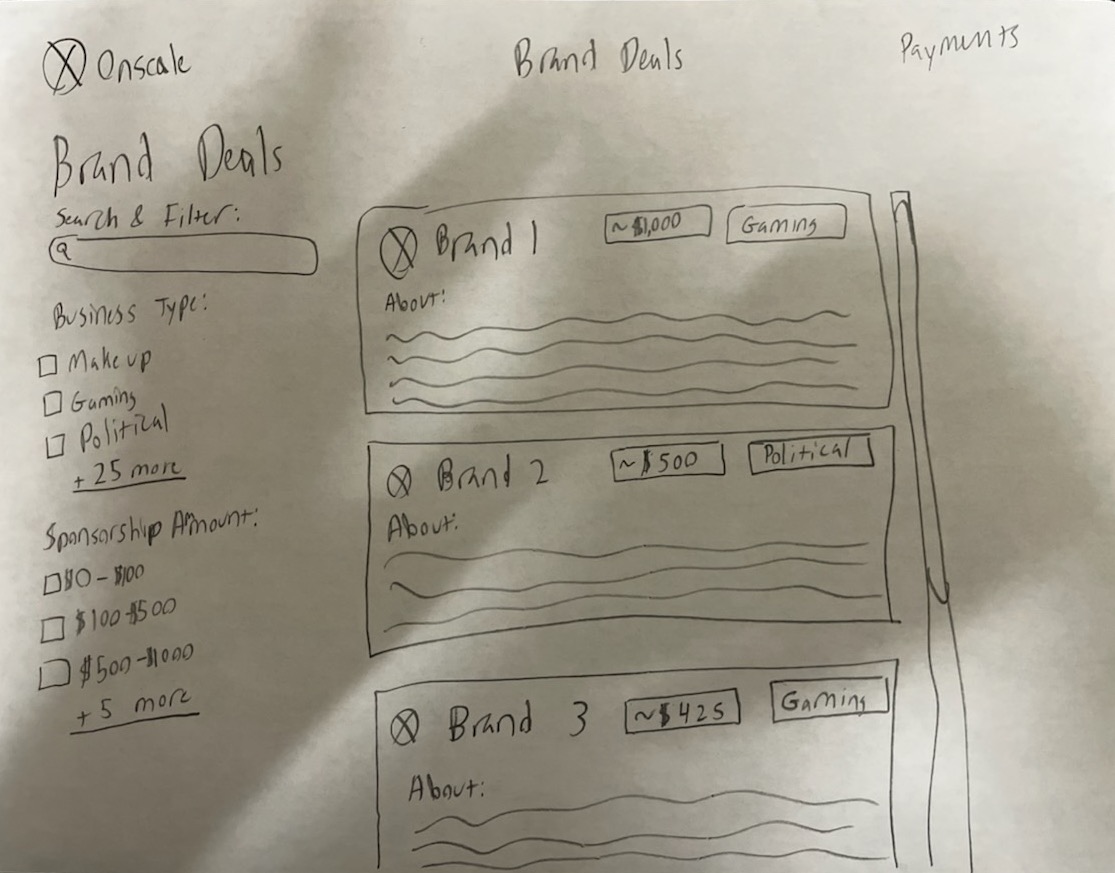 Onscale
Brand Deals
Payments
Brand Deals
Search & Filter:
Business Type:
Makeup
Gaming
Political
+ 25 more
Sponsorship Amount:
$0 - $100
$100-$500
$500-$1000
+ 5 more
Brand 1
~$1,000
Gaming
About:
Brand 2
~$500
Political
About:
Brand 3
~$425
Gaming
About: